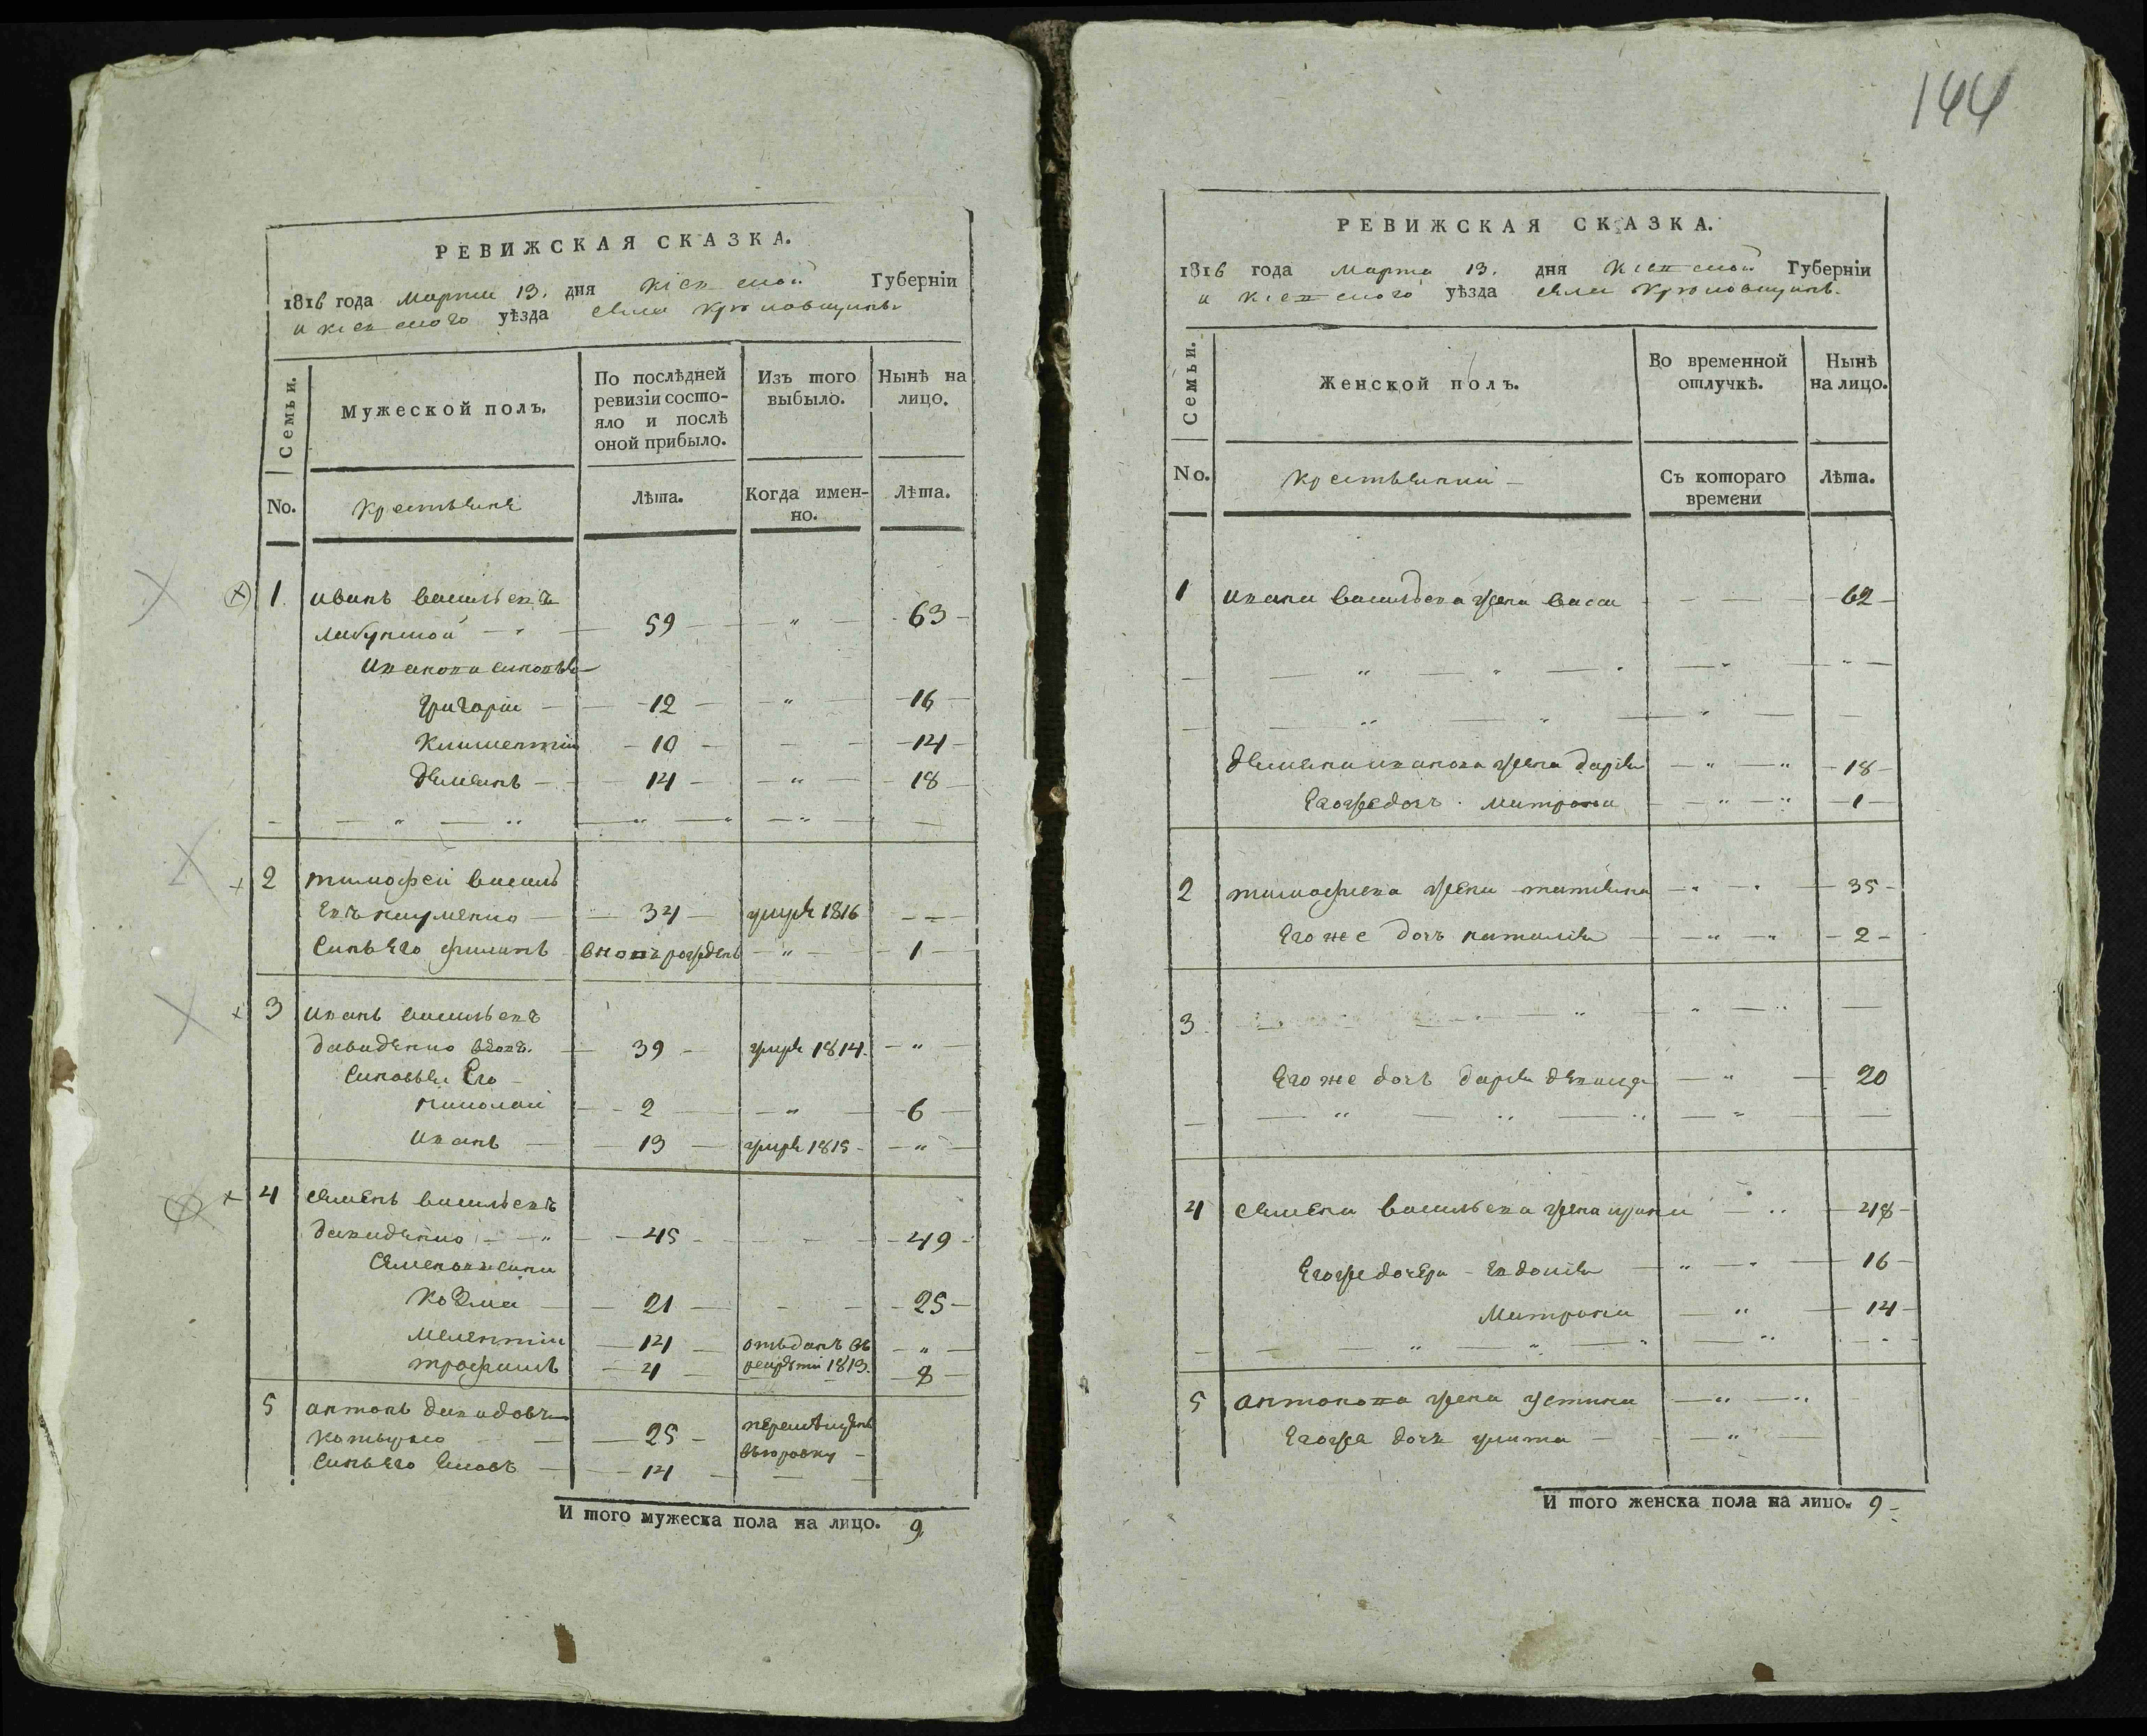 РЕВИЖСКАЯ СКАЗКА.
1816 года Марта 13. дня Кіевской Губерніи
и Кіевского уѣзда села Крюковщины
Семьи.
Мужеской полъ.
По послѣдней ревизіи состо-
яло и послѣ оной прибыло.
Изъ того выбыло.
Нынѣ на лицо.
No.
Крестьяне
Лѣта.
Когда имен-
но.
Лѣта.
1 иванъ васильевъ
59 " 63
ивановы сыновья
Григорій 12 " 16
Климентій 10 14
Демьянъ 14 " 18
2 тимофей василь
евъ науменко 34 умре 1816
Сынъ его филипъ вновъ рожденъ " 1
3 иванъ васильевъ
давиденко 39 умре 1814. "
Сыновья Его
николай 2 " 6
иванъ 13 умре 1815 "
4 семенъ васильевъ
давиденко 45 49
Семеновы сыны
Козма 21 25
Мелентій 14 отъданъ въ "
трофимъ 4 рекруты 1813. 8
5 антонъ давидовъ
25 перемѣщенъ
Сынъ его 14
И того мужеска пола на лицо. 9
144
РЕВИЖСКАЯ СКАЗКА.
1816 года Марта 13. дня Кіевской Губерніи
и Кіевского уѣзда села Крюковщины.
Семьи.
Женской полъ.
Во временной отлучкѣ.
Нынѣ на лицо.
No.
Крестьянки
Съ котораго времени
Лѣта.
1 ивана васильева жена васса 62
демьяна иванова жена дарья 18
Егоже дочь Матрона 1
2 тимофеева жена татьяна 35
Его же дочь наталья 2
3
Его же дочь дарья девица 20
4 семена васильева жена ирина 48
Егоже дочери Евдокія 16
Матрона 14
5 антонова жена устина
Егоже дочь улита
И того женска пола на лицо. 9